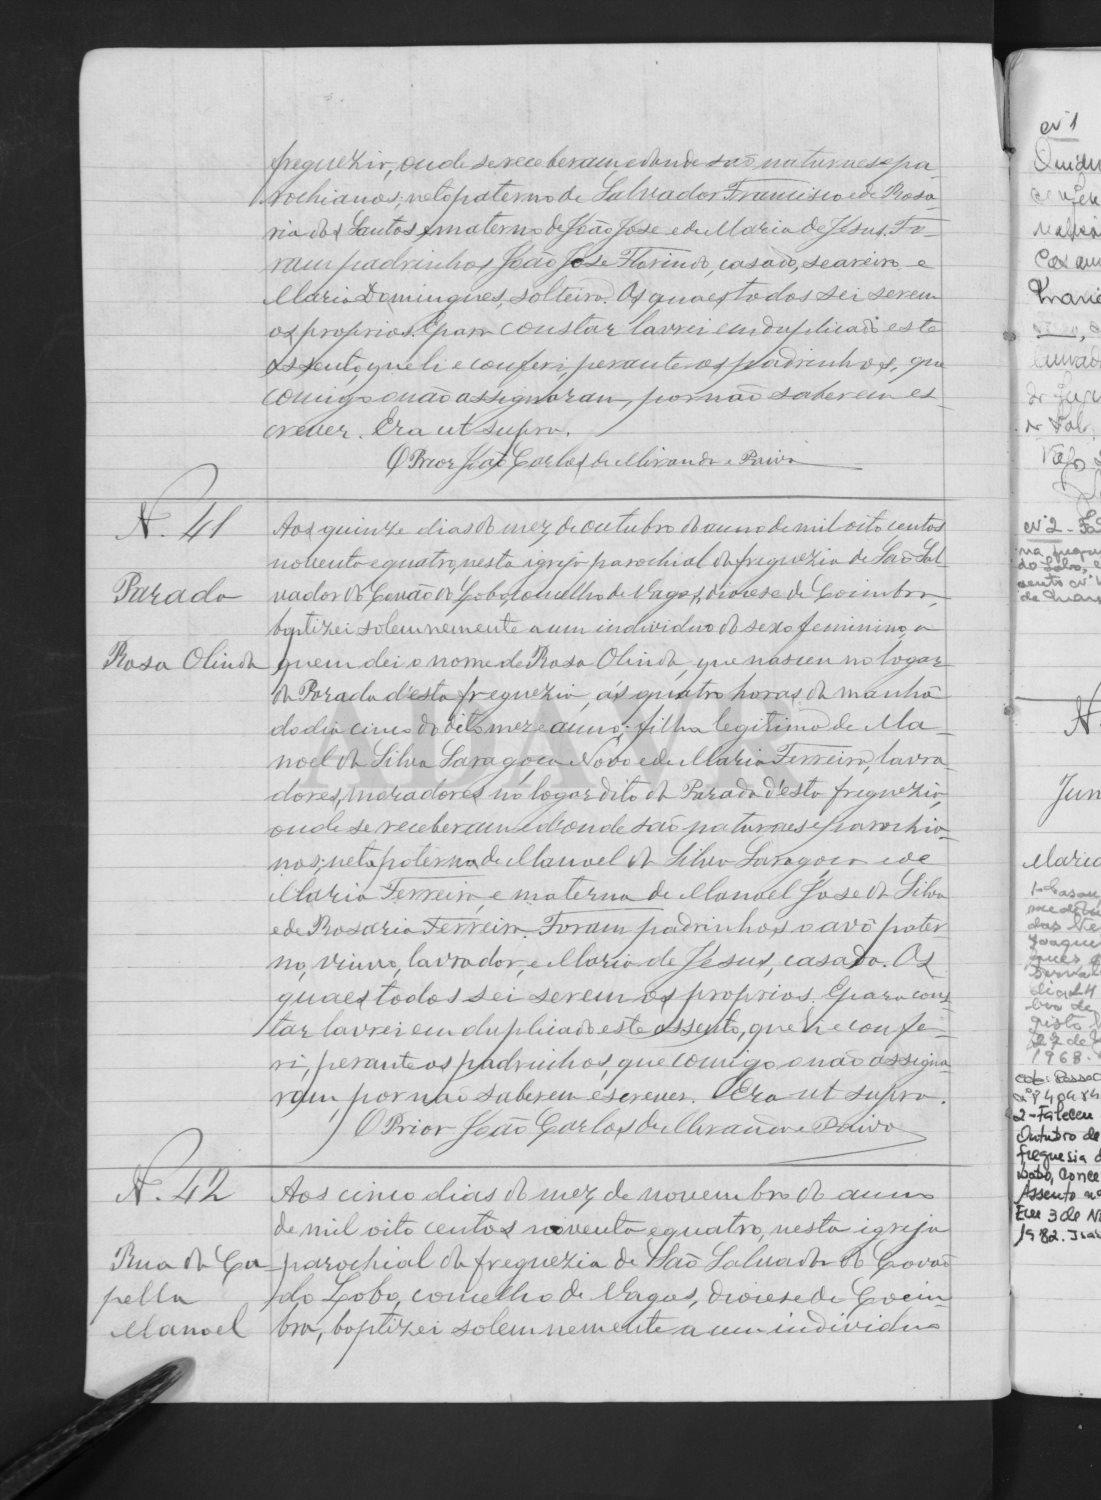 freguezia, onde se receberam e donde são naturaes e pa-
rochianos; neto paterno de Salvador Francisco e de Rosa-
ria dos Santos e materno de João José e de Maria de Jesus. Fo-
ram padrinhos João José Florindo, casado, seareiro e
Maria Domingues, solteira. Os quaes todos sei serem
os proprios. E para constar lavrei em duplicado este
assento, que li e conferi, perante os padrinhos, que
comigo o não assignaram, por não saberem es-
crever. Era ut supra.
O Prior João Carlos de Miranda e Paiva
N. 41
Parada
Rosa Olinda
Aos quinze dias do mez de outubro do anno de mil oito centos
noventa e quatro, nesta igreja parochial da freguezia de São Sal-
vador do Covão do Lobo, concelho de Vagos, diocese de Coimbra,
baptizei solemnemente a um individuo do sexo feminino, a
quem dei o nome de Rosa Olinda, que nasceu no logar
da Parada d'esta freguezia, ás quatro horas da manhã
do dia cinco do dito mez e anno; filha legitima de Ma-
noel da Silva Saragoça Novo e de Maria Ferreira, lavra-
dores, moradores no logar dito da Parada d'esta freguezia,
onde se receberam e d'onde são naturaes e parochia-
nos; neta paterna de Manoel da Silva Saragoça e de
Maria Ferreira, e materna de Manoel José da Silva
e de Rosaria Ferreira. Foram padrinhos o avô pater-
no, viuvo, lavrador, e Maria de Jesus, casada. Os
quaes todos sei serem os proprios. E para cons-
tar lavrei em duplicado este assento, que li e confe-
ri, perante os padrinhos, que comigo o não assigna-
ram por não saberem escrever. Era ut supra.
O Prior João Carlos de Miranda e Paiva
N. 42
Rua da Ca-
pella
Manoel
Aos cinco dias do mez de novembro do anno
de mil oito centos noventa e quatro, nesta igreja
parochial da freguezia de São Salvador do Covão
do Lobo, concelho de Vagos, diocese de Coim-
bra, baptizei solemnemente a um individuo
Nº 1
Nº 2
N.
Jun
Maria
1968.
2-Faleceu
Outubro de
freguesia d
Lobo, Conce
Assento nº
Em 3 de No
1982.